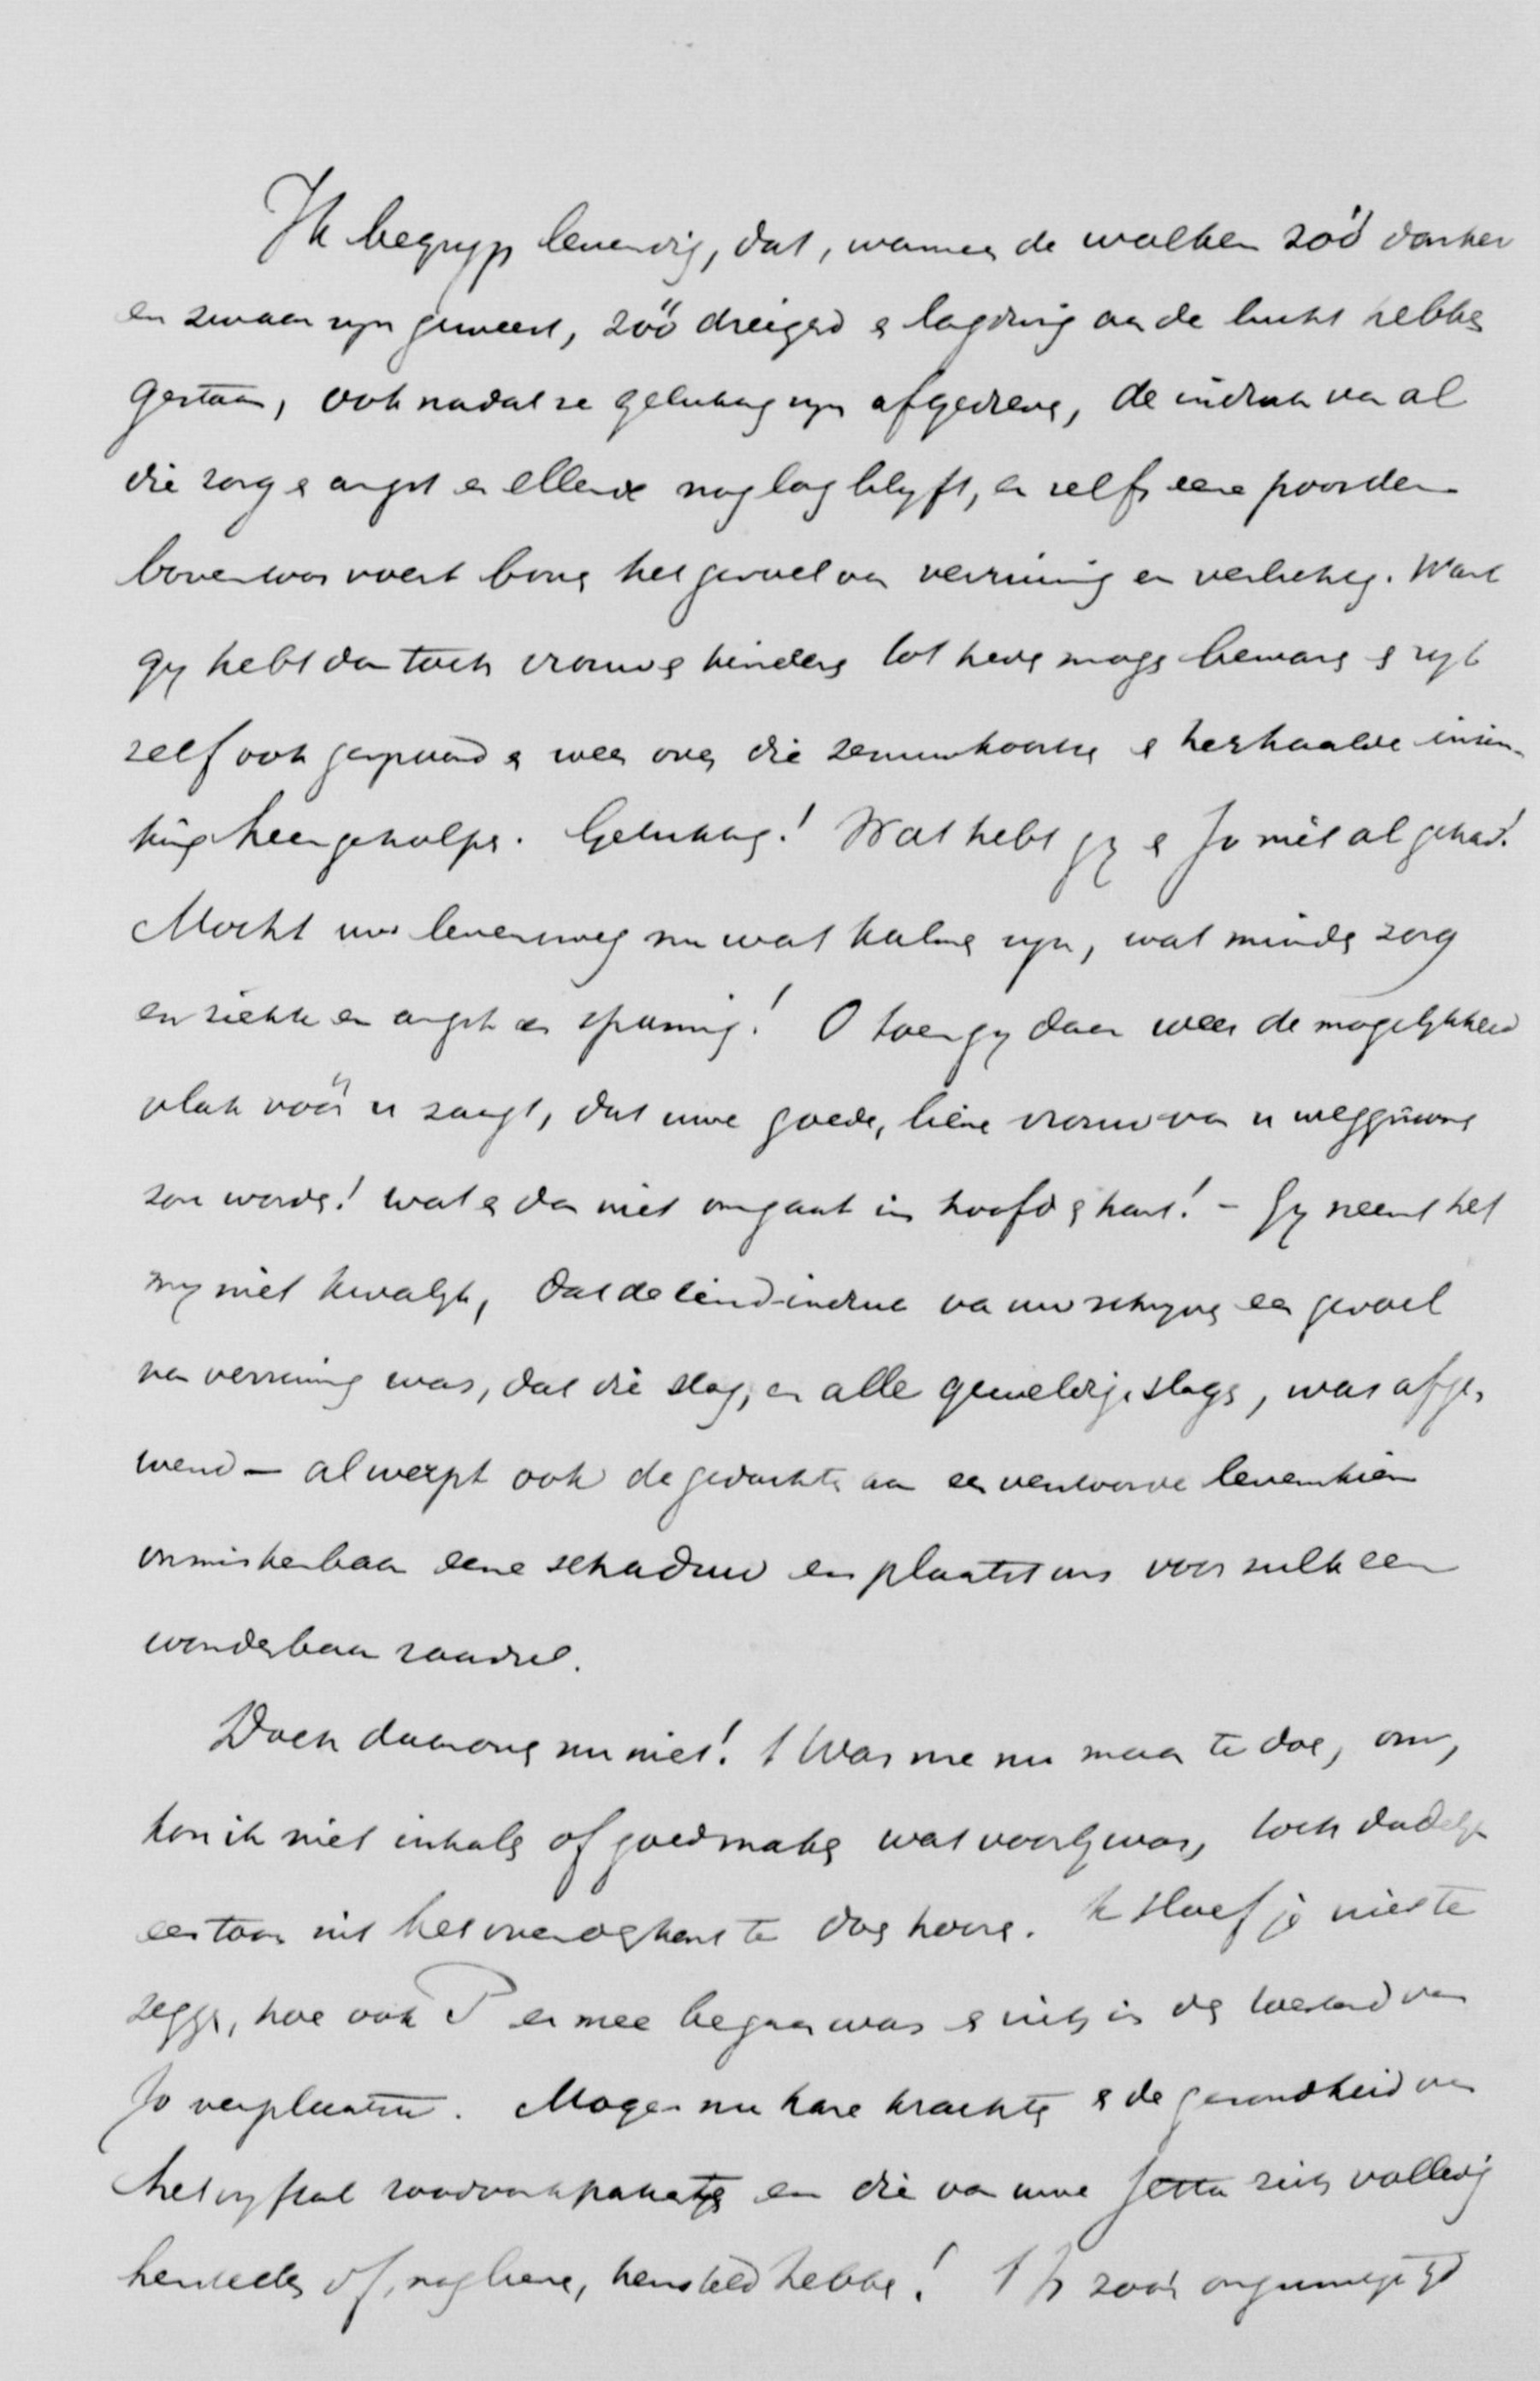 Ik begryp levendig, dat, wanneer de wolken zóó donker
en zwaar zyn geweest, zóó dreigend en langdurig aan de lucht hebben
gestaan, ook nadat ze gelukkig zyn afgedreven, de indruk van al
die zorg en angst en ellende nog lang blyft, en zelfs eene poos den
boventoon voert boven het gevoel van verruiming en verlichting. Want
gy hebt dan toch vrouw en kinders tot heden mogen bewaren en zyt
zelf ook gespaard en weer over die zenuwkoortsen en herhaalde inzin-
king heengeholpen. Gelukkig! Wat hebt gy en Jo niet al gehad!
Mocht uw levensweg nu wat kalmer zyn, wat minder zorg
en ziekte en angst en spanning! O toen gy daar weer de mogelykheid
vlak vóór u zaagt, dat uwe goede, lieve vrouw van u weggenomen
zou worden! wat er dan niet omgaat in hoofd en hart! - Gy neemt het
my niet kwalyk, dat de eind-indruk van uw schryven een gevoel
van verruiming was, dat die slag, en alle geweldige slagen, was afge-
wend - al werpt ook de gedachte aan een verstoorde levenskiem
onmiskenbaar eene schaduw en plaatst ons voor zulk een
wonderbaar raadsel.
Doch daarover nu niet! 't Was me nu maar te doen, om,
kon ik niet inhalen of goedmaken wat voorby was, toch dadelyk
een toon uit het overvolle hart te doen hooren. Ik hoef je niet te
zeggen, hoe ook P er mee begaan was en zich in den toestand van
Jo verplaatste. Mogen nu hare krachten en de gezondheid van
het vyftal en die van uwe Jetta zich volledig
herstellen of, nog liever, hersteld hebben! 't Is zoo'n